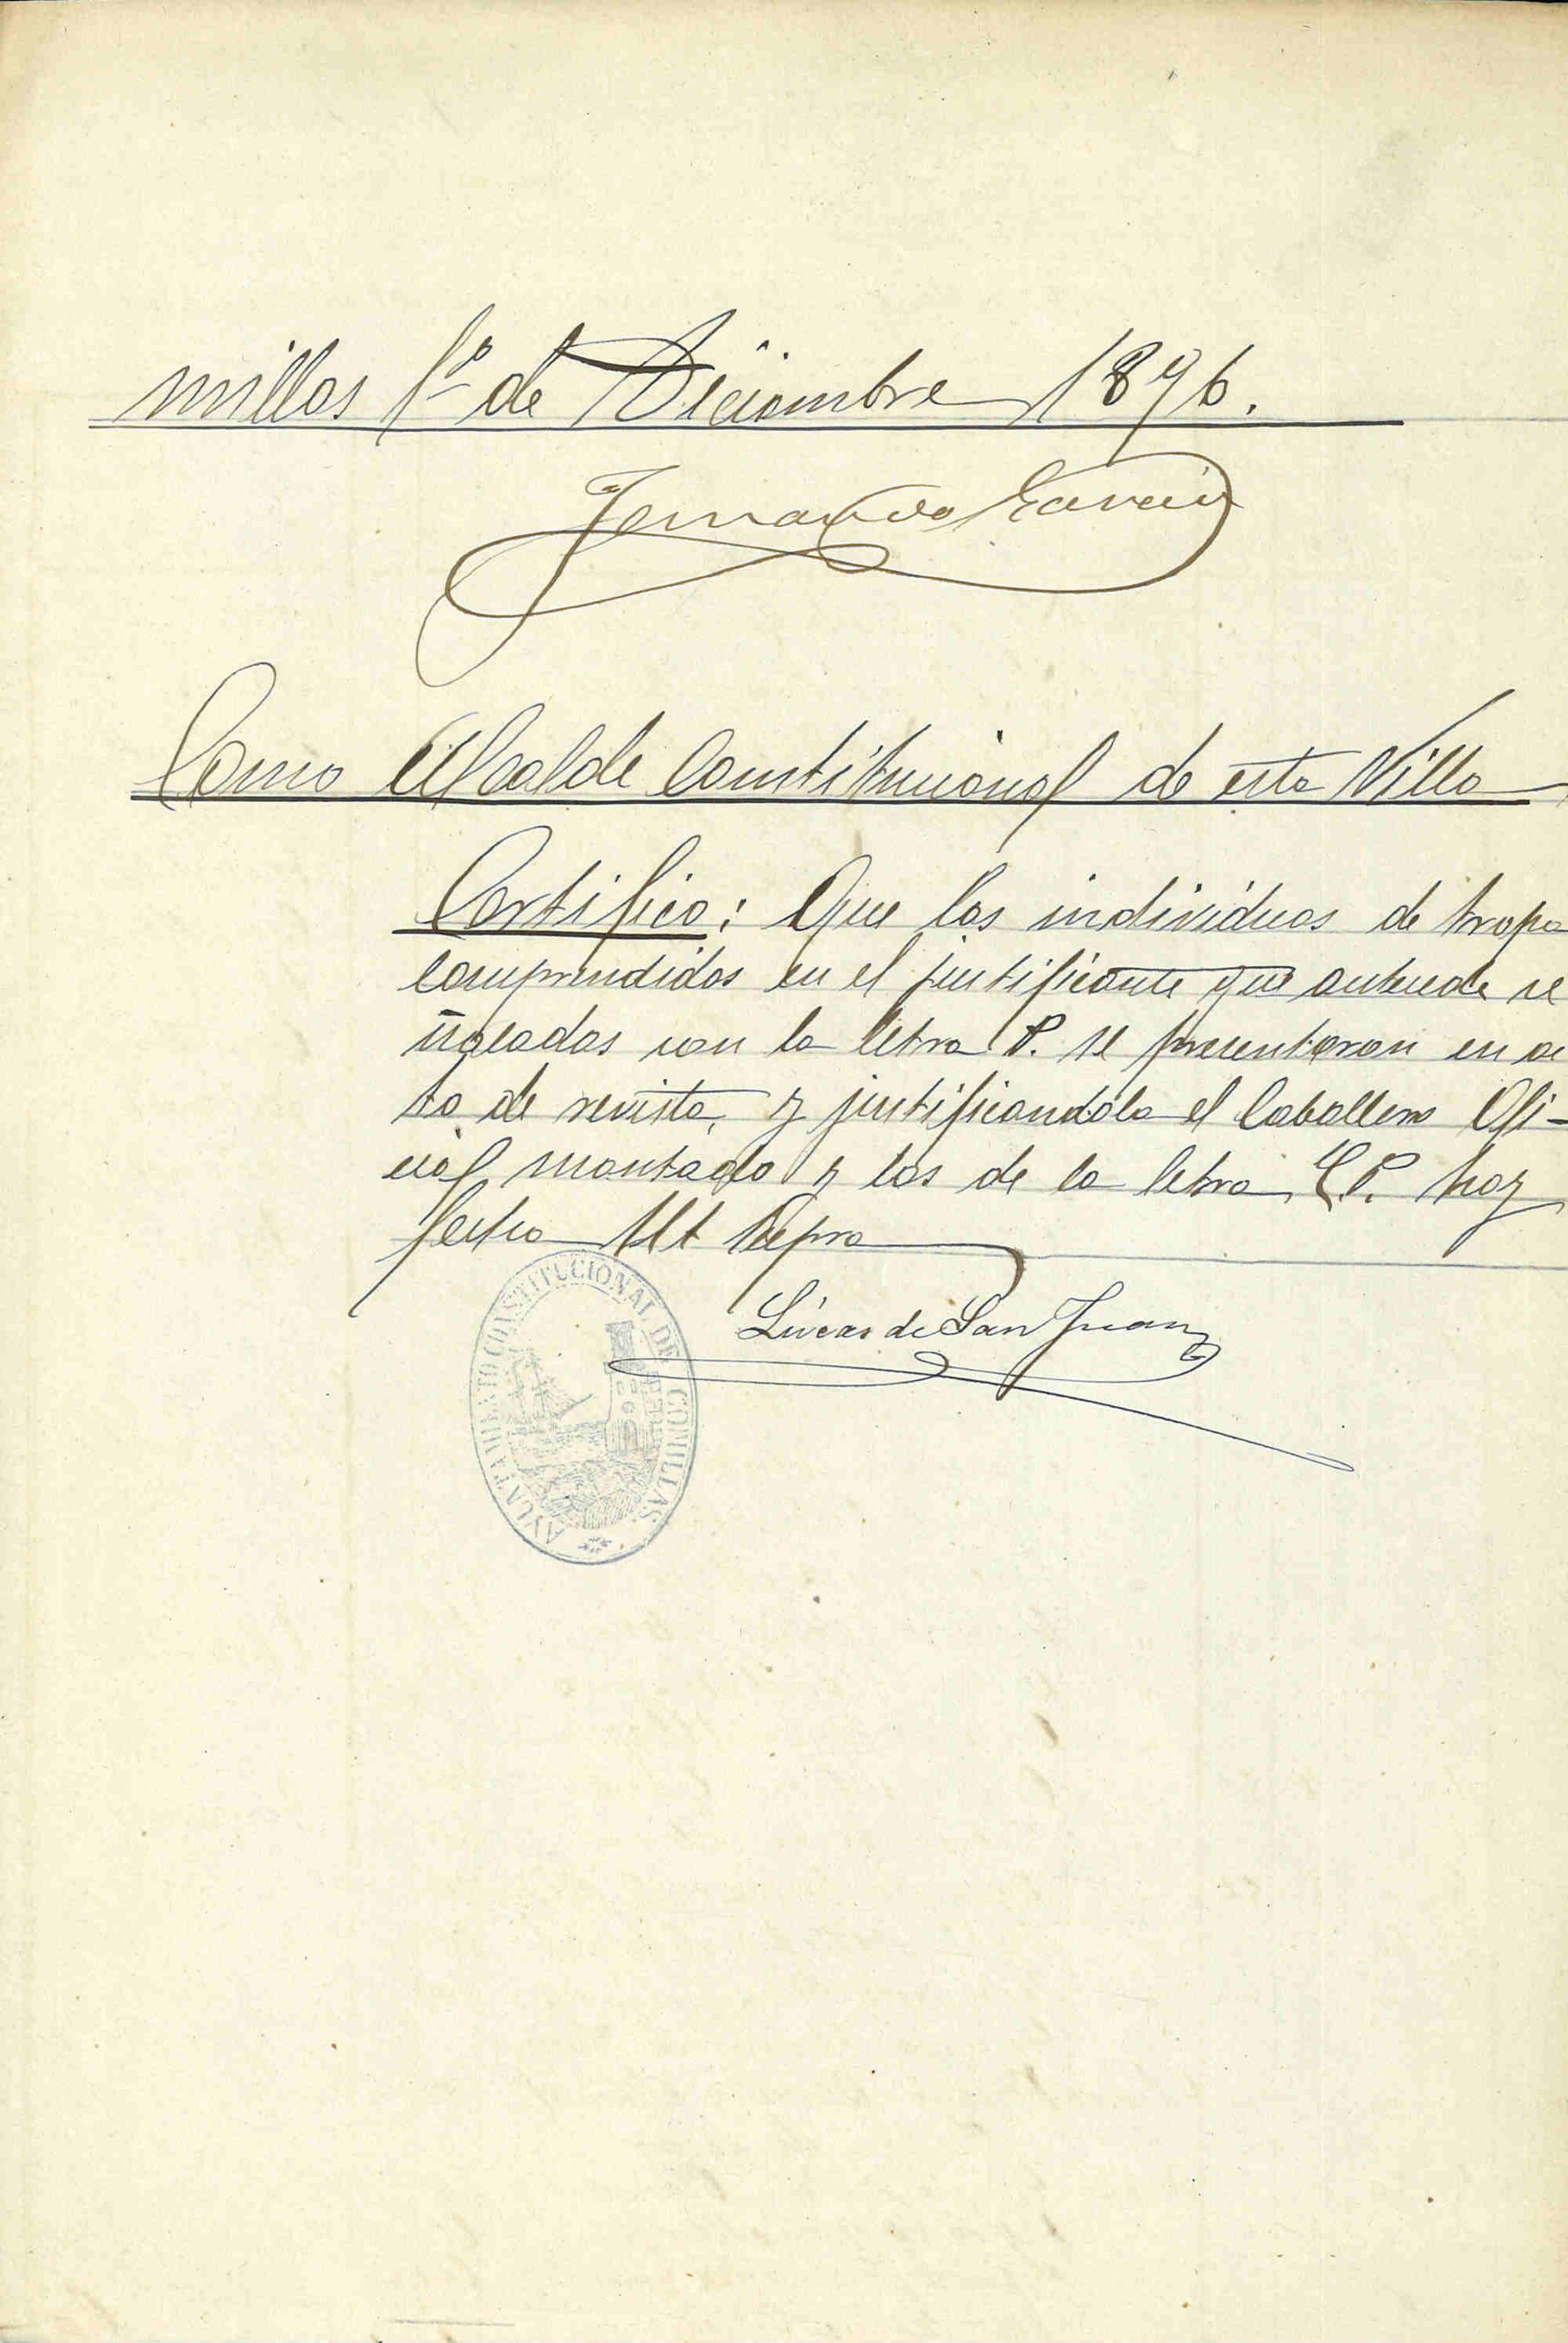 millas 1º de Diciembre 1896.
Fernando Garcia
Como Alcalde Constitucional de esta Villa
Certifico: Que los individuos de tropa
comprendidos en el justificante que antecede se
ñalados con la letra P. se presentaron en ac
to de revista, y justificandolo el Caballero Ofi-
cial montado y los de la letra C.P. hoy
fecha
Lúcas de San Juan
AYUNTAMIENTO CONSTITUCIONAL DE COMILLAS